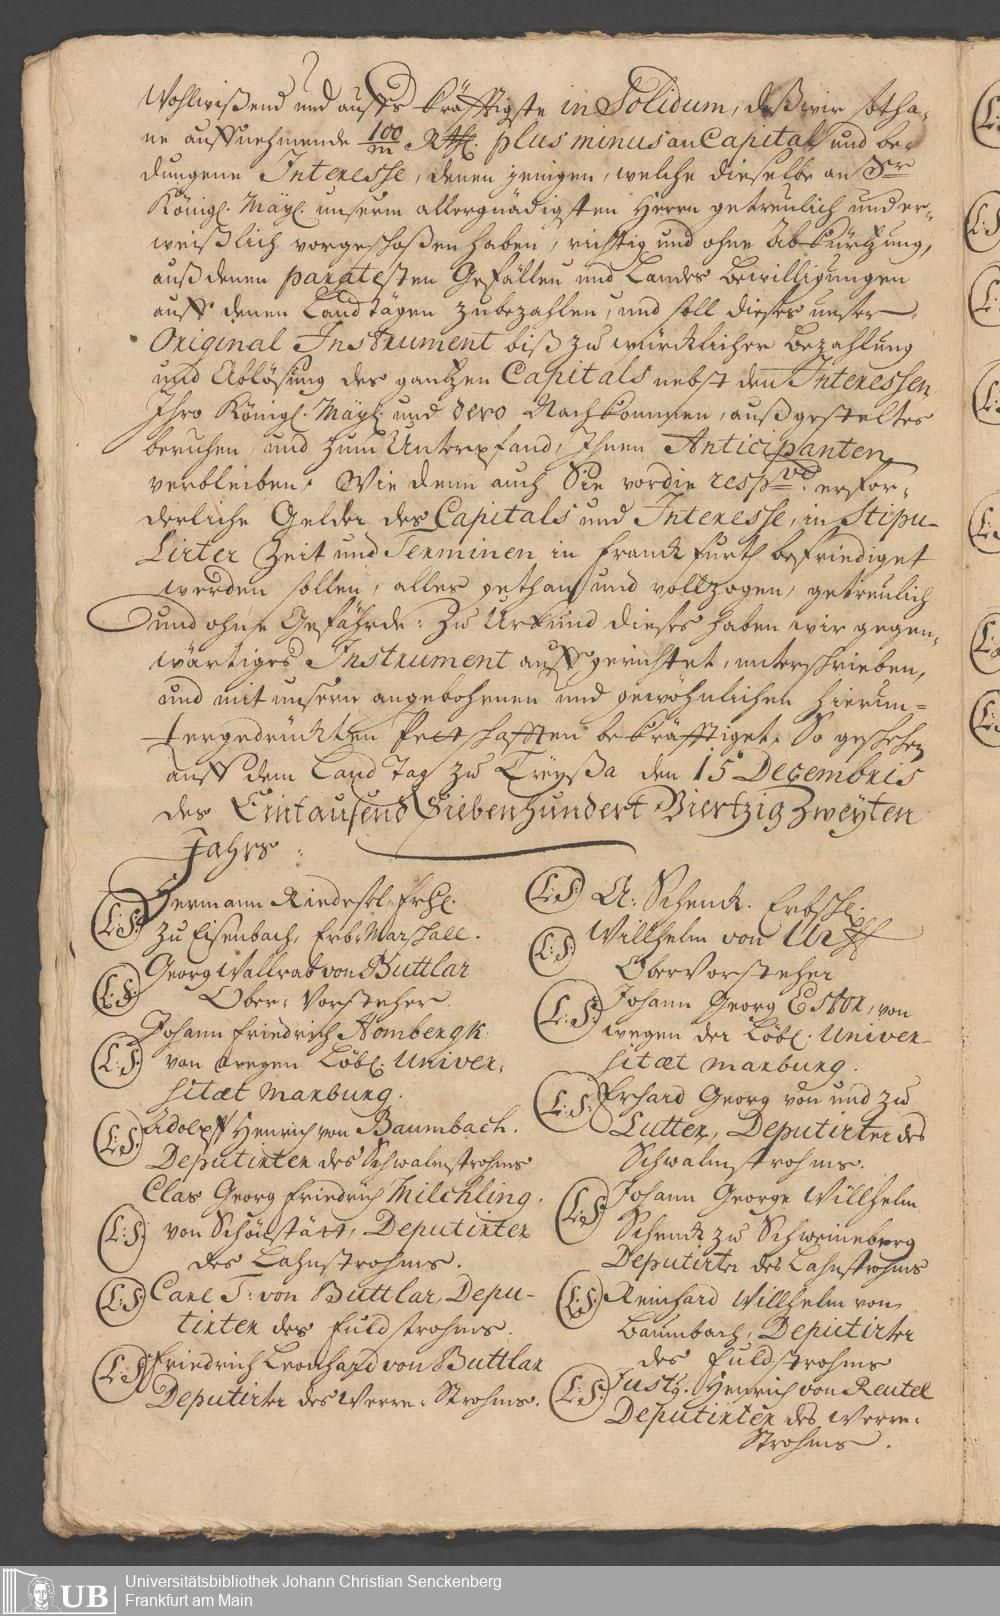 Wohlwißend und auffs kräfftigste in Solidum, daß wir sotha-
ne auffnehmende 100/m Rthl. plus minus an Capital und be-
dungene Interesse, denen jenigen, welche dieselbe an Sr
Königl. Mäyl. unserm allergnädigsten Herrn getreulich und er-
weißlich vorgeschoßen haben, richtig und ohne Abkürtzung,
auß denen paratesten Gefällen und Landes Bewilligungen
auff denen Landtägen zu bezahlen, und soll dieses unser
Original Instrument biß zu würcklicher Bezahlung
und Ablösung des gantzen Capitals nebst den Interessen
Ihro Königl. Mäyl. und dero Nachkommen, außgestelltes
beruhen, und zum Unterpfand, Ihnen Anticipanten
verbleiben. Wie denn auch Sie vor die respve. erfor-
derliche Gelder des Capitals und Interesse, in Stipu-
lirter Zeit und Terminen in Franckfurth befriediget
werden sollen, alles gethan und vollzogen, getreulich
und ohne Gefährde: Zu Urkund dieses haben wir gegen-
wärtiges Instrument auffgerichtet, unterschrieben,
und mit unsern angebohrnen und gewöhnlichen hierun-
tergedruckten Pettschafften bekräfftiget. So geschehen
auff dem Land Tag zu Treyßa den 15 Decembris
des Eintausend Siebenhundert Viertzig Zweyten
Jahrs:
(L:S:) Hermann Riedesel Frhl.
zu Eisenbach, Erb: Marshall.
(L:S:) Georg Wallrab von Buttlar
Ober: Vorsteher.
Johann Friedrich Hombergk
(L:S:) von wegen Löbl. Univer-
sitæt Marburg.
(L:S:) Adolph Henrich von Baumbach.
Deputirter des Schwalmstrohms
Clas Georg Friedrich Milchling
(L:S:) von Schönstätt, Deputirter
des Lahnstrohms.
(L:S:) Carl T: von Buttlar, Depu-
tirter des Fuldstrohms.
(L:S:) Friedrich Leonhard von Buttlar
Deputirter des Werre-Strohms.
(L:S:) A: Schenck. Erbsch.
(L:S:) Willhelm von Urff
Ober Vorsteher
(L:S:) Johann Georg Estor, von
wegen der Löbl. Univer-
sitæt Marburg.
(L:S:) Erhard Georg von und zu
Lutter, Deputirter des
Schwalmstrohms.
(L:S:) Johann George Willhelm
Schenck zu Schweinsberg
Deputirter des Lahnstrohms
(L:S:) Reinhard Willhelm von
Baumbach, Deputirter
des Fuldstrohms
(L:S:) Justg. Henrich von Reutel
Deputirter des Werre-
Strohms.
UB Universitätsbibliothek Johann Christian Senckenberg
Frankfurt am Main